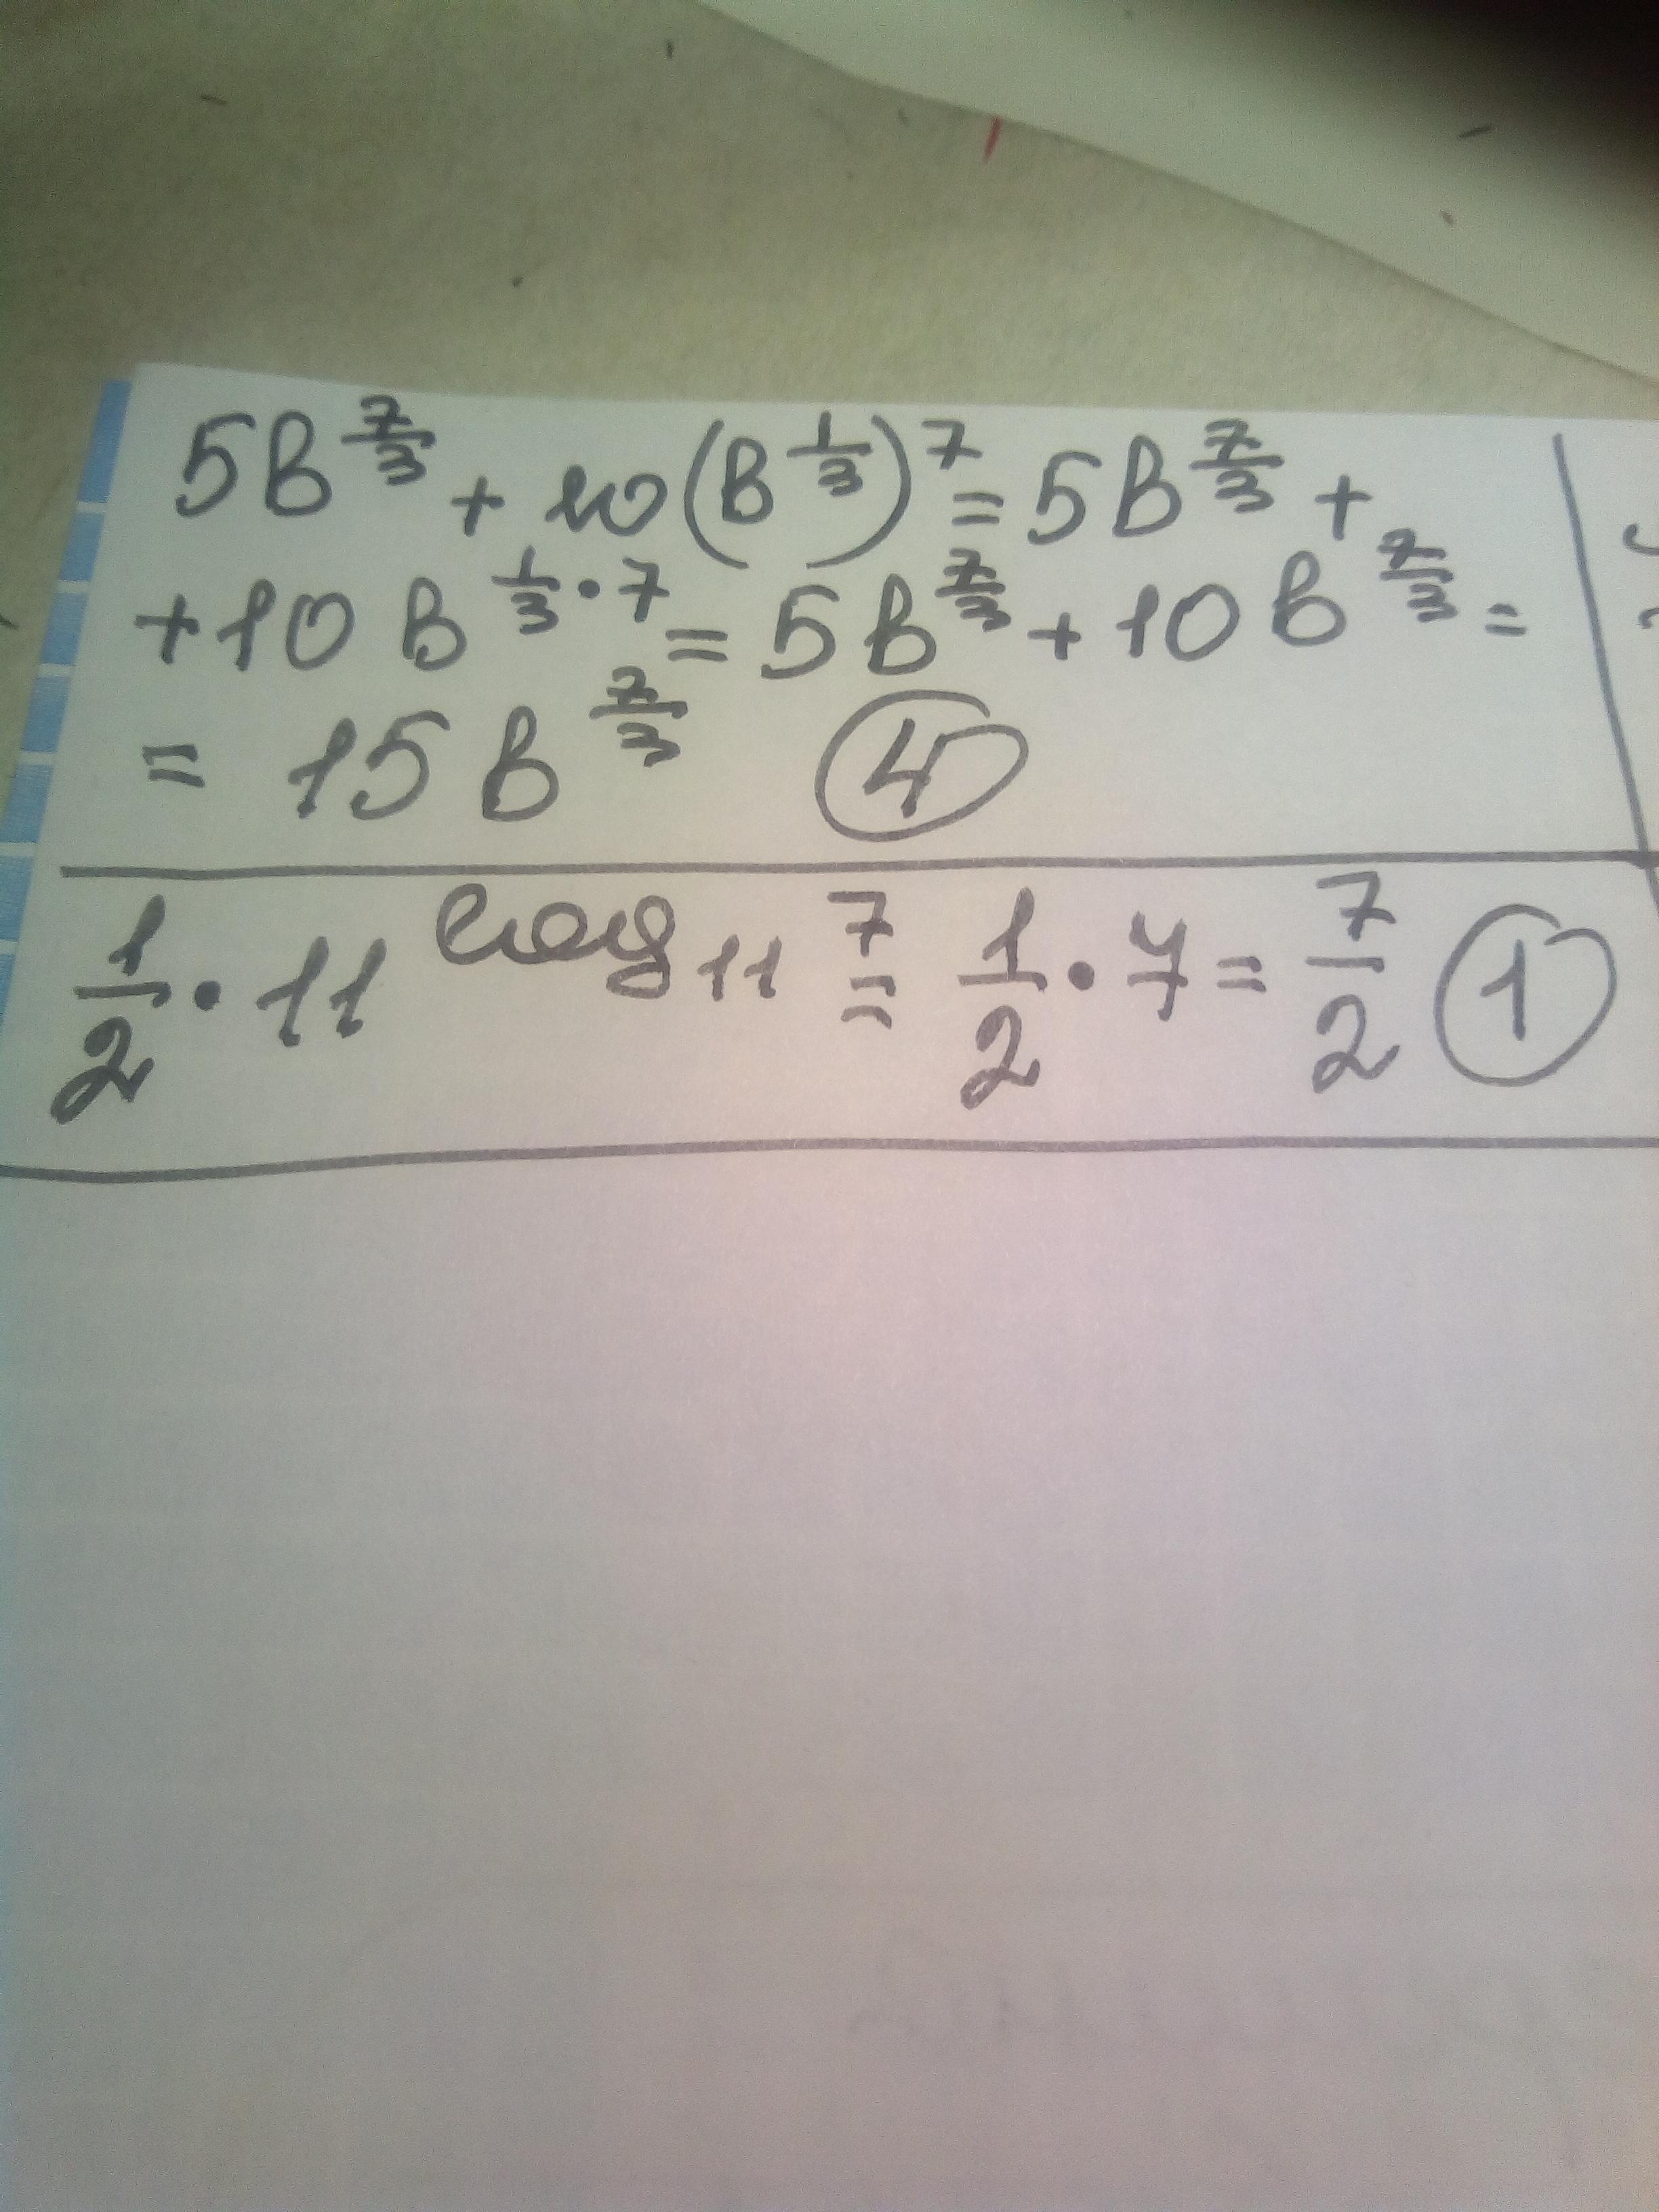 5в^(7/3) + 10(в^(1/3))^7 = 5в^(7/3) +
+10в^(1/3 · 7) = 5в^(7/3) + 10в^(7/3) =
= 15в^(7/3) ④
1/2 · 11^(log₁₁ 7) = 1/2 · 7 = 7/2 ①